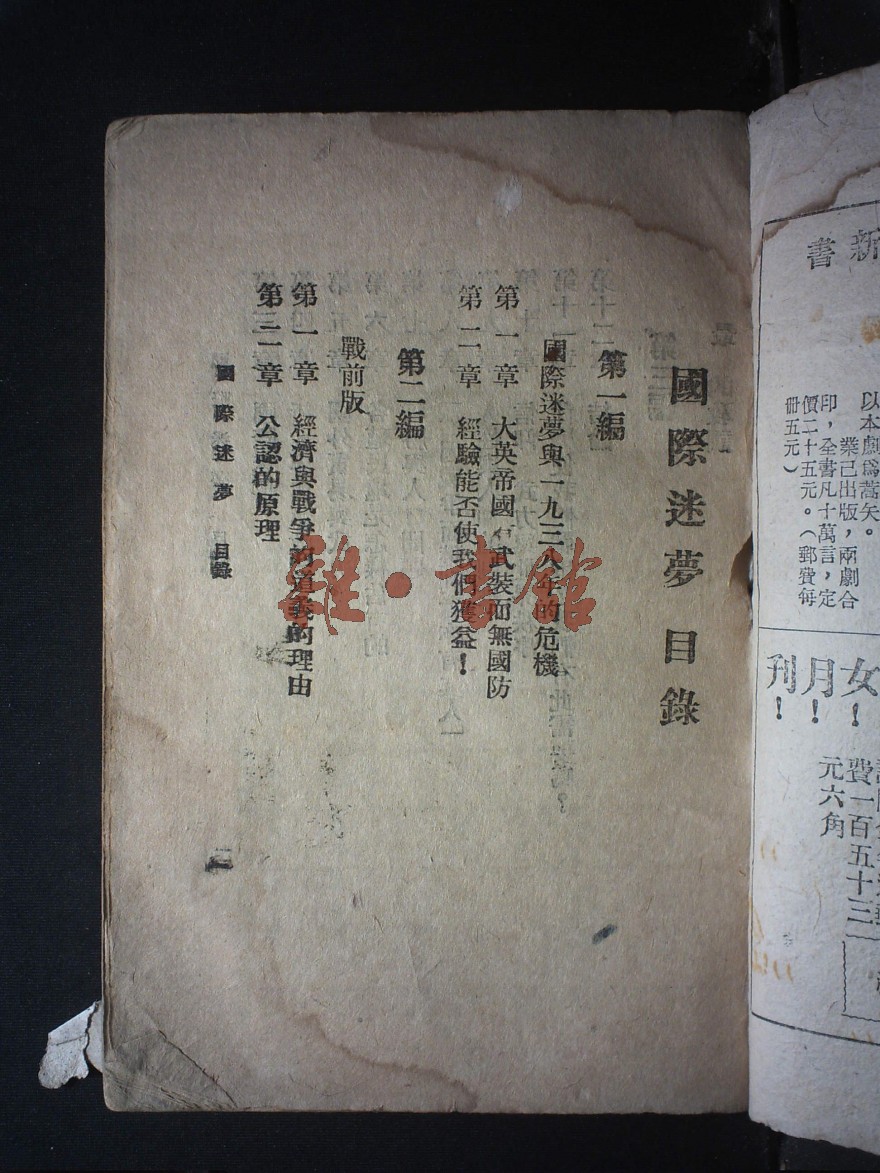 國際迷夢 目錄
第一編
國際迷夢與一九三八年的危機
第一章 大英帝國有武裝而無國防
第二章 經驗能否使我們獲益!
第二編
戰前版
第一章 經濟與戰爭的道義的理由
第二章 公認的原理
國際迷夢 目錄
雜·書館
新
書
以本劇爲蒿矢。
業已出版,兩劇合
印,全書凡十萬言,定
價二十五元。(郵費每
冊五元)
女
月
刊
!
!
!
費一百五十三
元六角